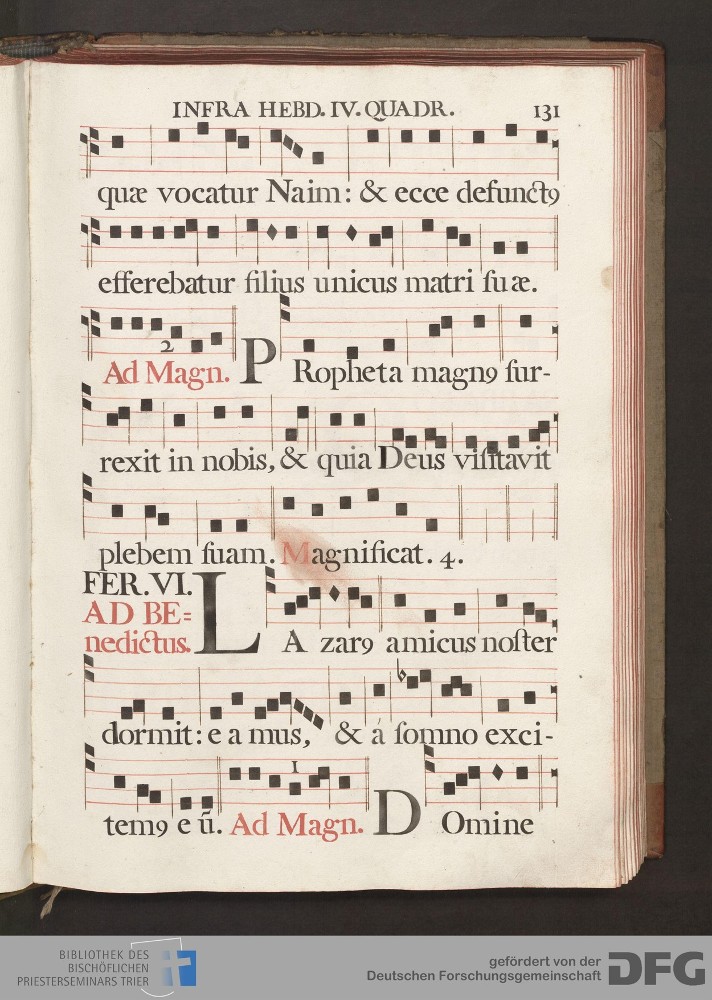 INFRA HEBD. IV. QUADR. 131
quæ vocatur Naim: & ecce defunctꝯ
efferebatur filius unicus matri suæ.
2
Ad Magn. PRopheta magnꝯ sur-
rexit in nobis, & quia Deus visitavit
plebem suam. Magnificat. 4.
FER. VI.
AD BE=
nedictus. LAzarꝯ amicus noster
dormit: eamus, & á somno exci-
1
temꝯ eū. Ad Magn. DOmine
BIBLIOTHEK DES
BISCHÖFLICHEN
PRIESTERSEMINARS TRIER
gefördert von der
Deutschen Forschungsgemeinschaft DFG